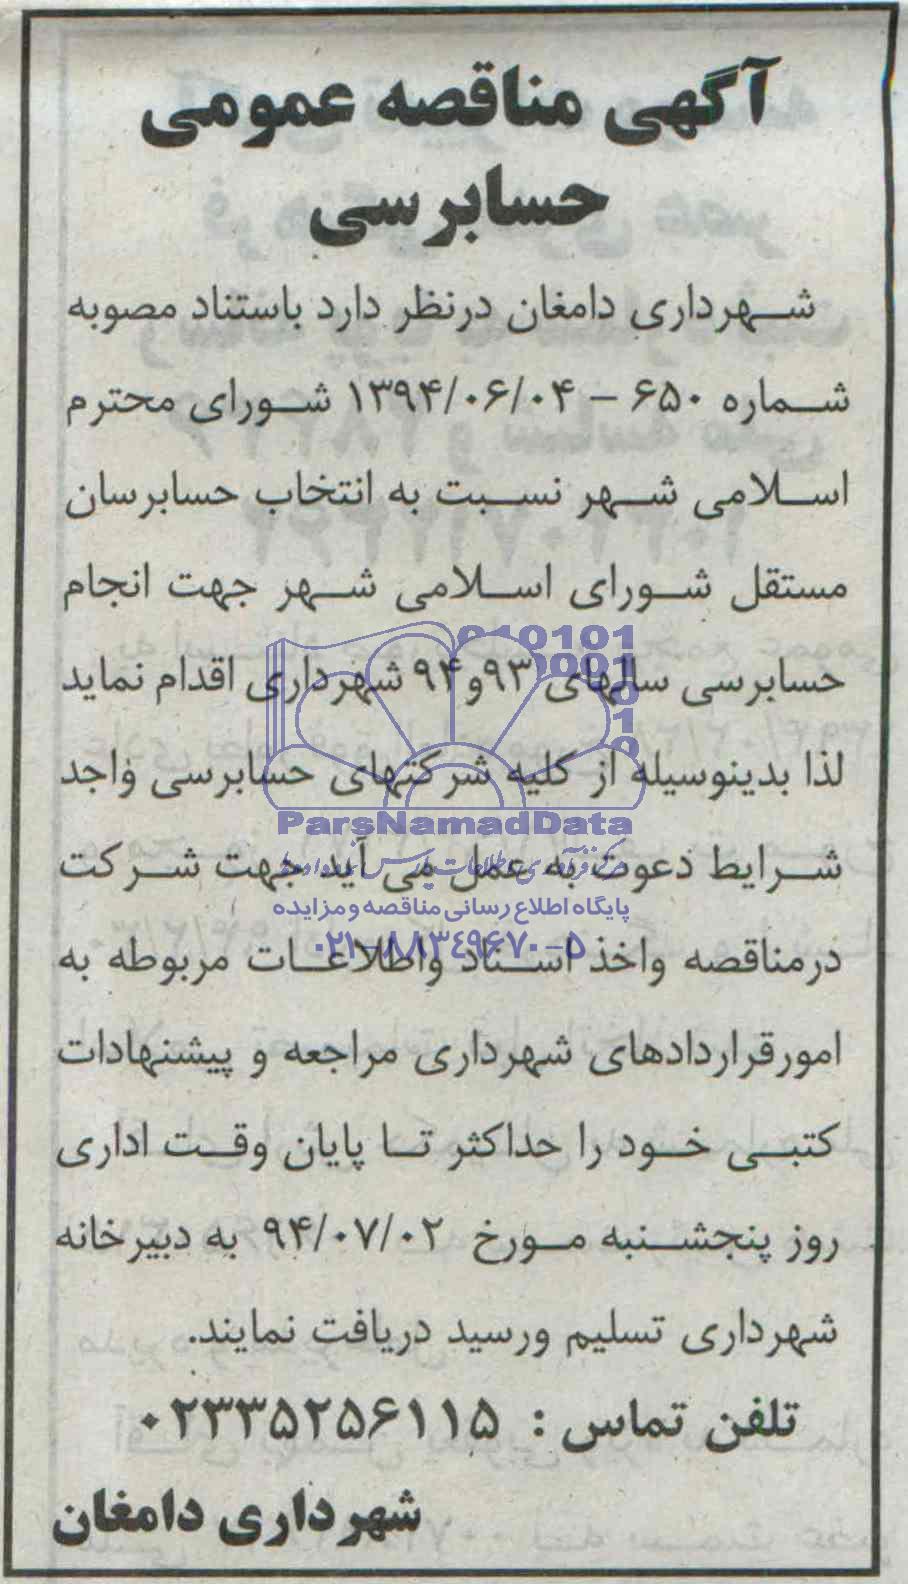 آگهی مناقصه عمومی
حسابرسی
شهرداری دامغان درنظر دارد باستناد مصوبه
شماره ۶۵۰ – ۱۳۹۴/۰۶/۰۴ شورای محترم
اسلامی شهر نسبت به انتخاب حسابرسان
مستقل شورای اسلامی شهر جهت انجام
حسابرسی سالهای ۹۳و۹۴ شهرداری اقدام نماید
لذا بدینوسیله از کلیه شرکتهای حسابرسی واجد
شرایط دعوت به عمل می آید جهت شرکت
درمناقصه واخذ اسناد واطلاعات مربوطه به
امورقراردادهای شهرداری مراجعه و پیشنهادات
کتبی خود را حداکثر تا پایان وقت اداری
روز پنجشنبه مورخ ۹۴/۰۷/۰۲ به دبیرخانه
شهرداری تسلیم ورسید دریافت نمایند.
تلفن تماس : ۰۲۳۳۵۲۵۶۱۱۵
شهرداری دامغان
ParsNamadData
مرکز فرآوری اطلاعات پارس نماد داده ها
پایگاه اطلاع رسانی مناقصه و مزایده
۰۲۱-۸۸۳۴۹۶۷۰-۵